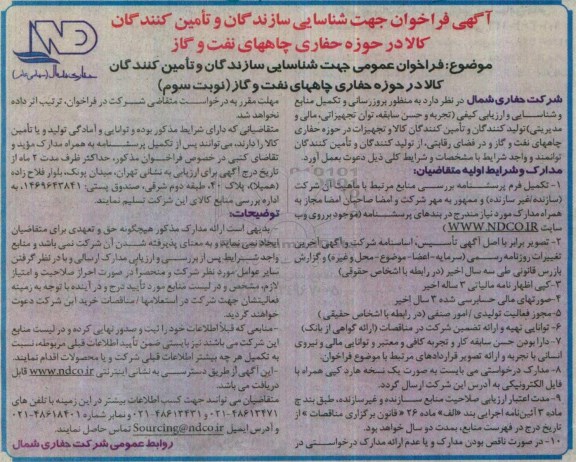 آگهی فراخوان جهت شناسایی سازندگان و تأمین کنندگان
کالا در حوزه حفاری چاههای نفت و گاز
موضوع: فراخوان عمومی جهت شناسایی سازندگان و تأمین کنندگان
کالا در حوزه حفاری چاههای نفت و گاز (نوبت سوم)
NDC
شرکت حفاری شمال در نظر دارد به منظور بروزرسانی و تکمیل منابع
و شناسایی و ارزیابی کیفی (تجربه و حسن سابقه، توان تجهیزاتی، مالی و
مدیریتی) تولید کنندگان و تأمین کنندگان کالا و تجهیزات در حوزه حفاری
چاههای نفت و گاز و در فضای رقابتی، از تولید کنندگان و تأمین کنندگان
توانمند و واجد شرایط با مشخصات و شرایط کلی ذیل دعوت بعمل آورد.
مدارک و شرایط اولیه متقاضیان:
۱- تکمیل فرم پرسشنامه بررسی منابع مرتبط با ماهیت آن شرکت
(سازنده/غیر سازنده) و ممهور به مهر شرکت و امضا صاحبان امضا مجاز به
همراه مدارک مورد نیاز مندرج در بندهای پرسشنامه (موجود بر روی وب
سایت WWW.NDCO.IR)
۲- تصویر برابر با اصل آگهی تأسیس، اساسنامه شرکت و آگهی آخرین
تغییرات روزنامه رسمی (سرمایه-اعضا-موضوع-محل و غیره) و گزارش
بازرس قانونی طی سه سال اخیر (در رابطه با اشخاص حقوقی)
۳- کپی اظهار نامه مالیاتی ۳ ساله اخیر
۴- صورتهای مالی حسابرسی شده ۳ سال اخیر
۵- مجوز فعالیت تولیدی / امور صنفی (در رابطه با اشخاص حقیقی)
۶- توانایی تهیه و ارائه تضمین شرکت در مناقصات (ارائه گواهی از بانک)
۷- دارا بودن حسن سابقه کار و تجربه کافی و معتبر و توانایی مالی و نیروی
انسانی با تجربه و ارائه تصویر قراردادهای مرتبط با موضوع فراخوان
۸- مدارک درخواستی می بایست به صورت یک نسخه هارد کپی همراه با
فایل الکترونیکی به آدرس این شرکت ارسال گردد.
۹- مدت اعتبار ارزیابی صلاحیت منابع سازنده و غیر سازنده، طبق بند ج
ماده ۳ آئین نامه اجرایی بند «الف» ماده ۲۶ «قانون برگزاری مناقصات» از
تاریخ درج در فهرست منابع، بمدت دو سال خواهد بود.
۱۰- در صورت ناقص بودن مدارک و یا عدم ارائه مدارک درخواستی در
مهلت مقرر به درخواست متقاضی شرکت در فراخوان، ترتیب اثر داده
نخواهد شد.
متقاضیانی که دارای شرایط مذکور بوده و توانایی و آمادگی تولید و یا تأمین
کالا را دارند، می توانند پس از تکمیل پرسشنامه به همراه مدارک مؤید و
تقاضای کتبی در خصوص فراخوان مذکور، حداکثر ظرف مدت ۲ ماه از
تاریخ درج آگهی برای ارزیابی به نشانی تهران، میدان پونک، بلوار فلاح زاده
(همیلا)، پلاک ۴۰، طبقه دوم شرقی، صندوق پستی: ۱۴۶۹۶۴۳۸۴۱، به
اداره بررسی منابع کالای این شرکت تسلیم نمایند.
توضیحات:
- بدیهی است ارائه مدارک مذکور هیچگونه حق و تعهدی برای متقاضیان
ایجاد نمی نماید و به معنای پذیرفته شدن آن شرکت نمی باشد و منابع
واجد شرایط پس از بررسی و ارزیابی مدارک ارسالی و با در نظر گرفتن
سایر عوامل مورد نظر شرکت و منحصراً در صورت احراز صلاحیت و امتیاز
لازم، مشخص و در لیست منابع مورد تأیید درج و در آینده با توجه به زمینه
فعالیتشان جهت شرکت در استعلامها / مناقصات خرید این شرکت دعوت
خواهند گردید.
- منابعی که قبلاً اطلاعات خود را ثبت و صدور نهایی کرده و در لیست منابع
این شرکت می باشند نیز بایستی ضمن تأیید اطلاعات قبلی مربوطه، نسبت
به تکمیل هر چه بیشتر اطلاعات قبلی شرکت و یا محصولات اقدام نمایند.
- این آگهی از طریق دسترسی به نشانی اینترنتی www.ndco.ir قابل
دریافت می باشد.
متقاضیان می توانند جهت کسب اطلاعات بیشتر در این زمینه با تلفن های
۰۲۱-۴۸۶۱۲۴۷۱ و ۰۲۱-۴۸۶۱۲۴۳۱ و نمابر شماره ۰۲۱-۴۸۶۱۸۴۰۱
و آدرس ایمیل Sourcing@ndco.ir تماس حاصل نمایند.
روابط عمومی شرکت حفاری شمال